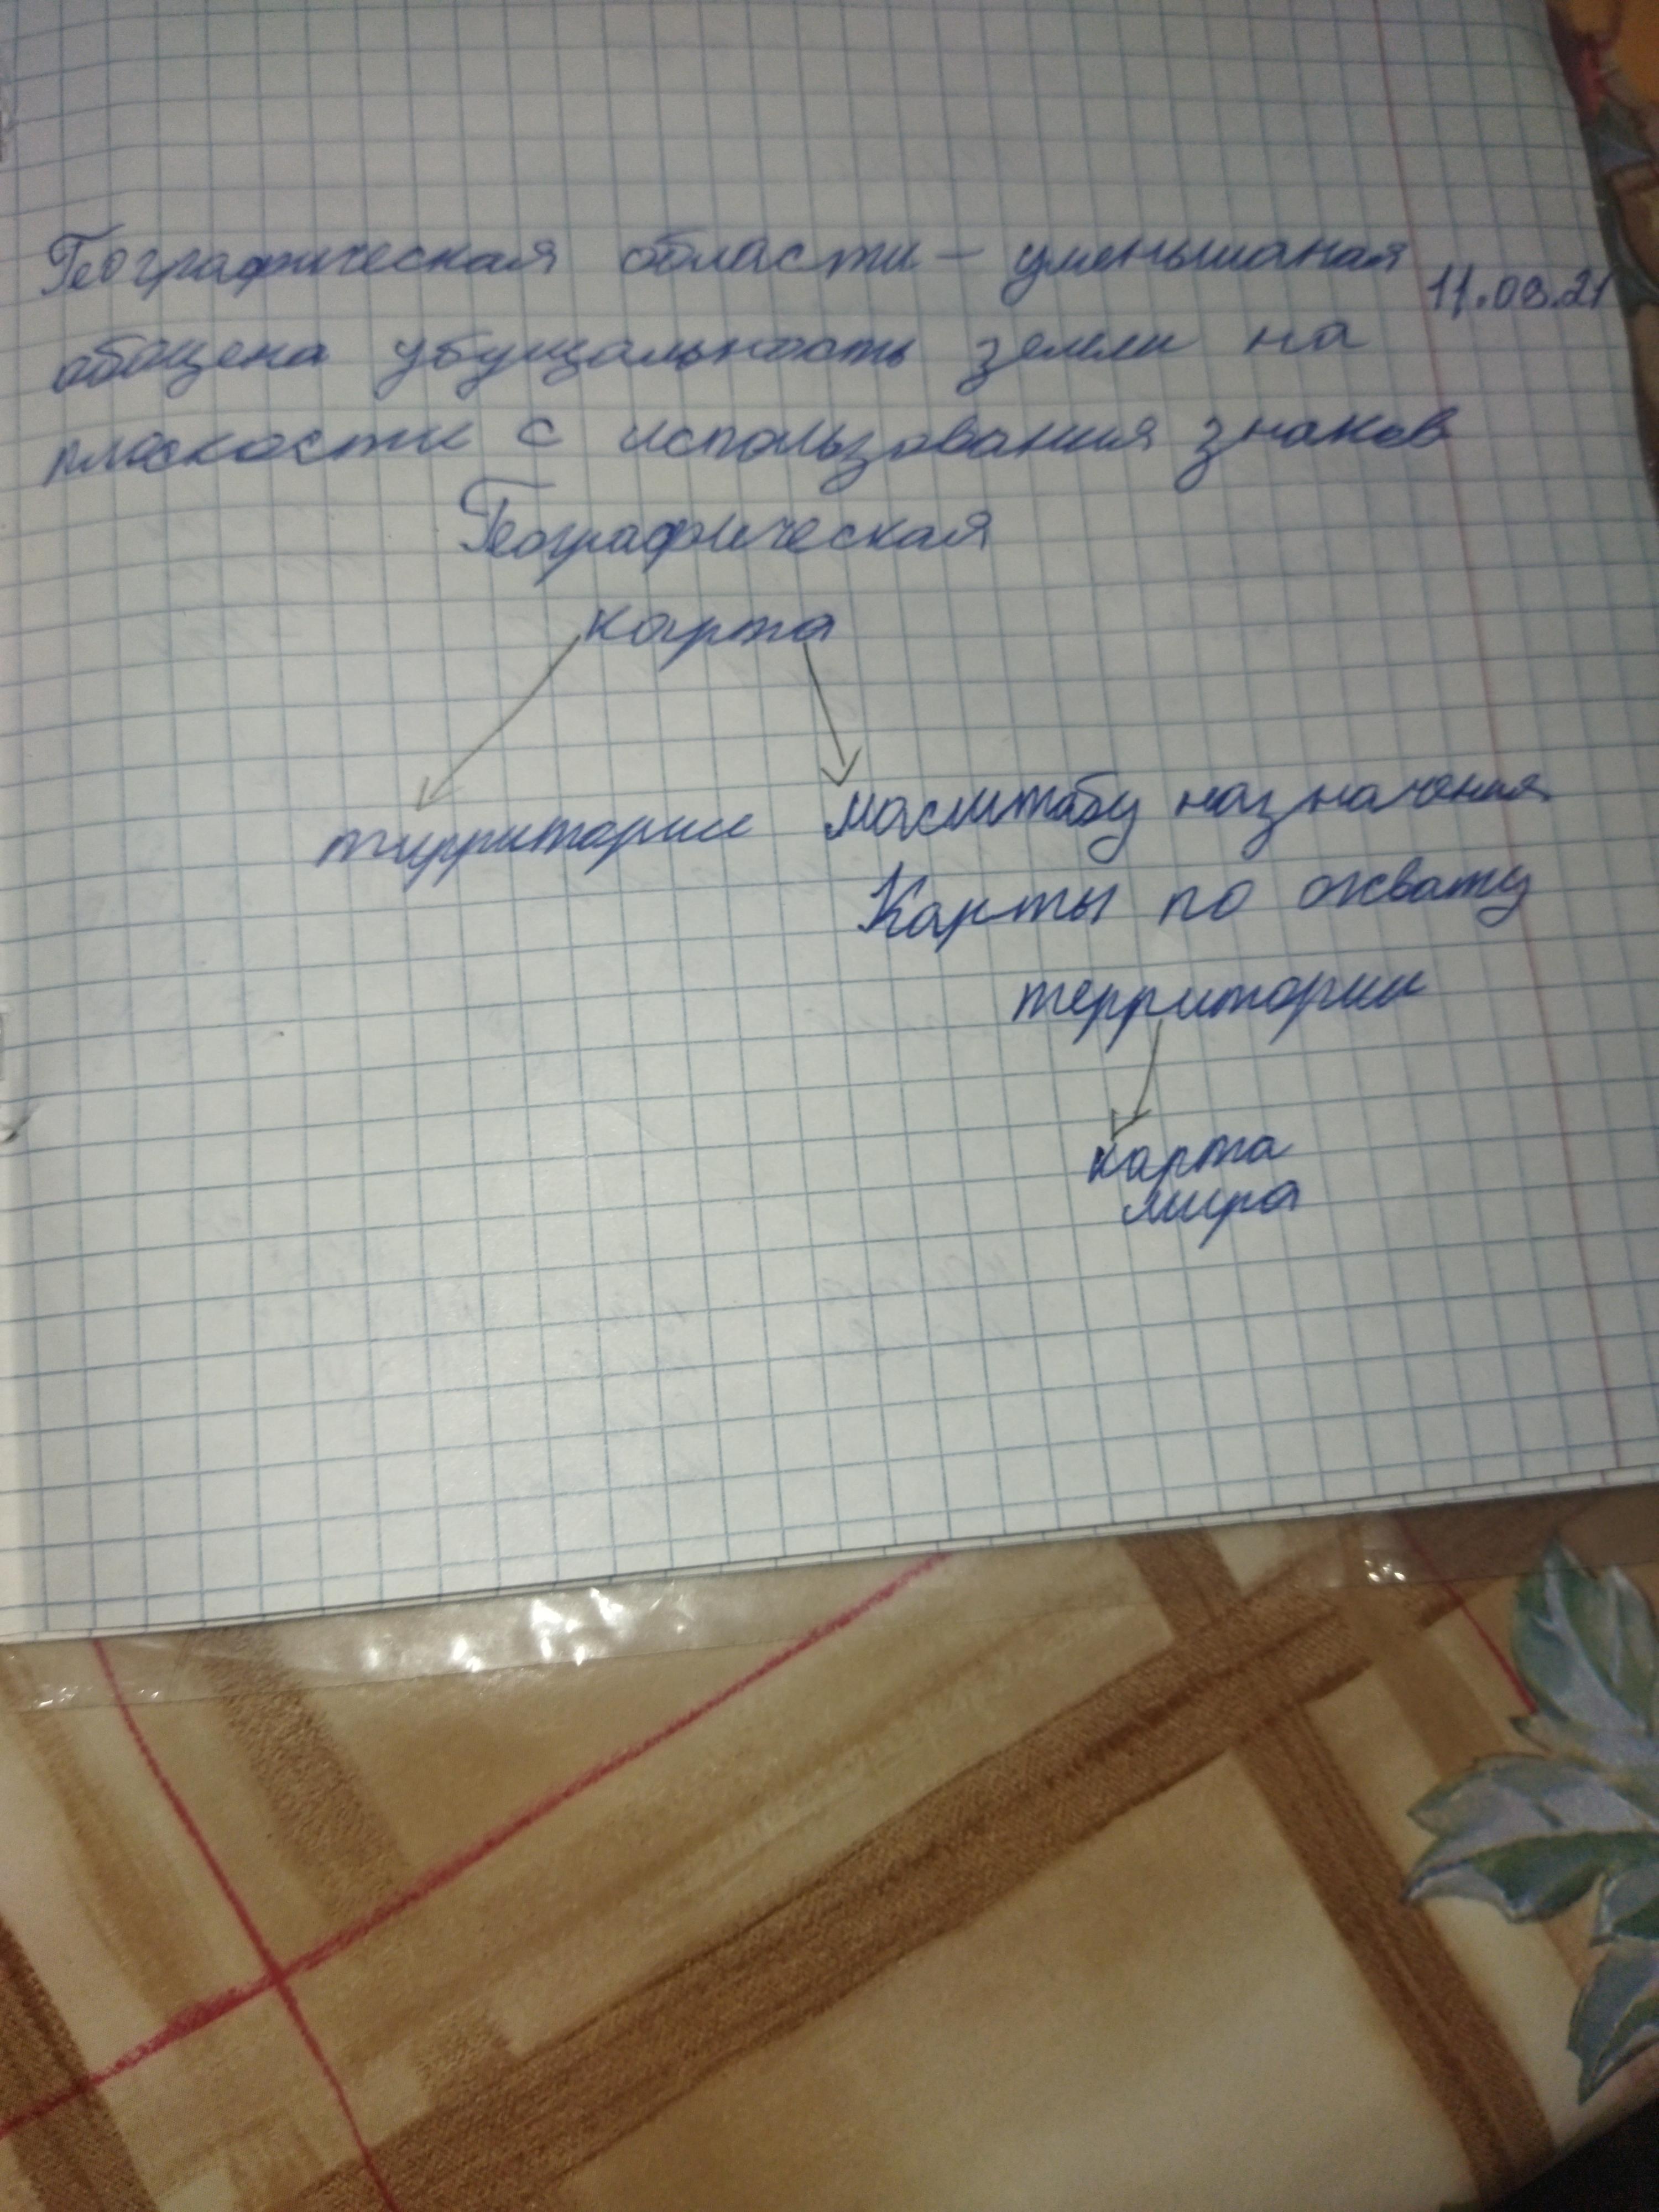 Географическая области - уменьшаная
11.03.21
обощена убущальность земли на
плоскости с использования знаков
Географическая
карта
территории масштабу назначения
Карты по охвату
территории
карта
мира